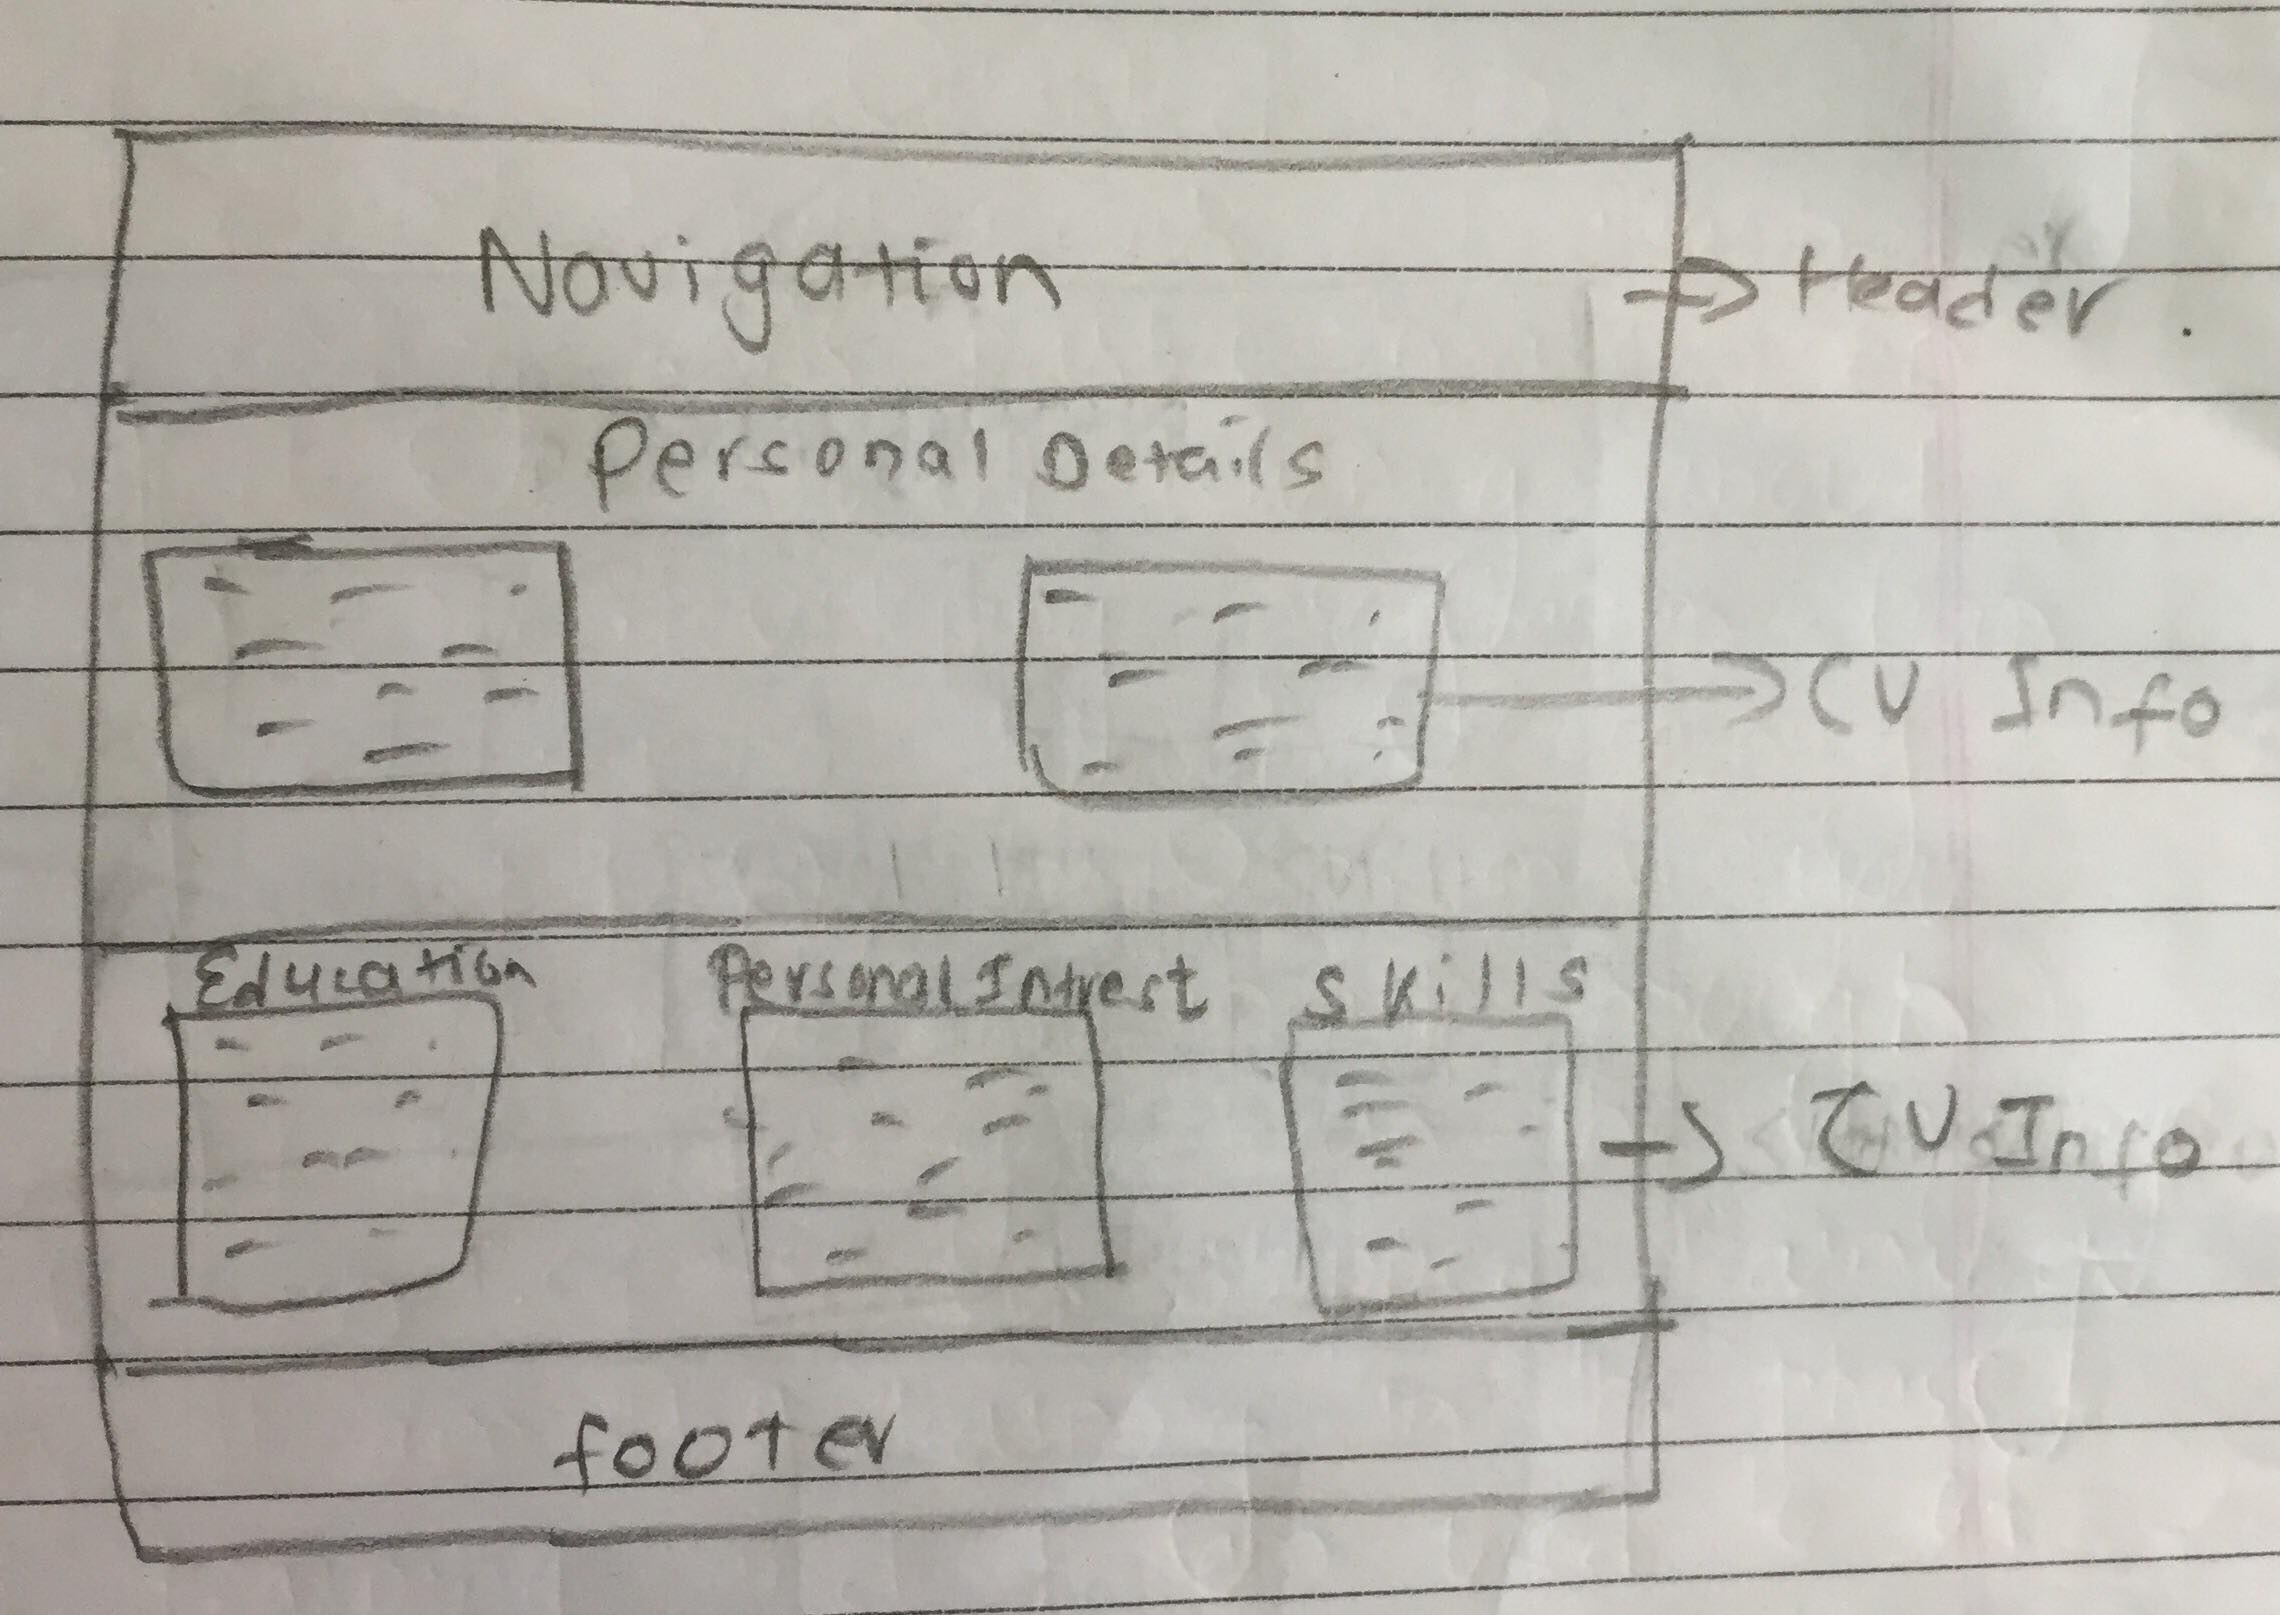 Navigation
Header.
Personal Details
CV Info
Education Personal Intrest Skills
CV Info
footer